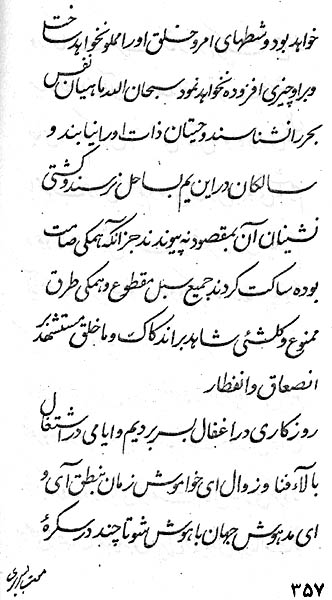 خواهد بود و شطهای امر و خلق او را مملو نخواهد ساخت
و بر او چیزی افزوده نخواهد نمود سبحان الله ماهیان نفس
بحر را نشناسند و حیتان ذات او را نیابند و
سالکان در این یم بساحل نرسند و کشتی
نشینان آن بمقصود نه پیوندند جز آنکه همگی صامت
بوده ساکت گردند جمیع سبل مقطوع و همگی طرق
ممنوع و کلشئی شاهد بر اندکاک و ما خلق مستشهد بر
انصعاق و انفطار
روزگاری در اغفال بسر بردیم و ایامی در اشتغال
بالآء فنا و زوال ای خواموش زمان بنطق آی و
ای مدهوش جهان باهوش شو تا چند در سکرهٔ
۳۵۷